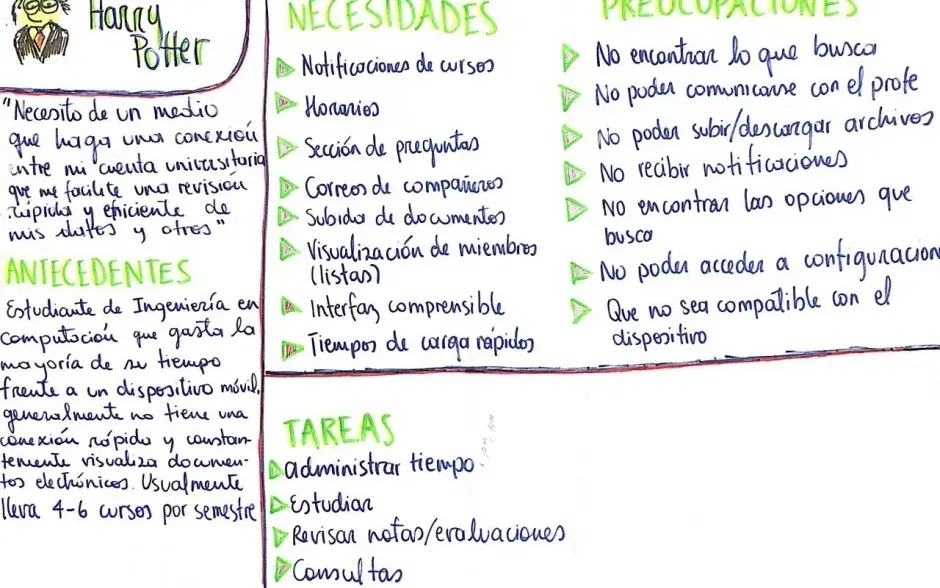 Harry
Potter
"Necesito de un medio
que haga una conexión
entre mi cuenta universitaria
que me facilite una revisión
rápida y eficiente de
mis datos y otros"
ANTECEDENTES
Estudiante de Ingeniería en
computación que gasta la
mayoría de su tiempo
frente a un dispositivo móvil,
generalmente no tiene una
conexión rápida y constan-
temente visualiza documen-
tos electrónicos. Usualmente
lleva 4-6 cursos por semestre
NECESIDADES
Notificaciones de cursos
Horarios
Sección de preguntas
Correos de compañeros
Subida de documentos
Visualización de miembros
(listas)
Interfaz comprensible
Tiempos de carga rápidos
PREOCUPACIONES
No encontrar lo que busca
No poder comunicarse con el profe
No poder subir/descargar archivos
No recibir notificaciones
No encontrar las opciones que
busca
No poder acceder a configuración
Que no sea compatible con el
dispositivo
TAREAS
administrar tiempo
Estudiar
Revisar notas/evaluaciones
Consultas